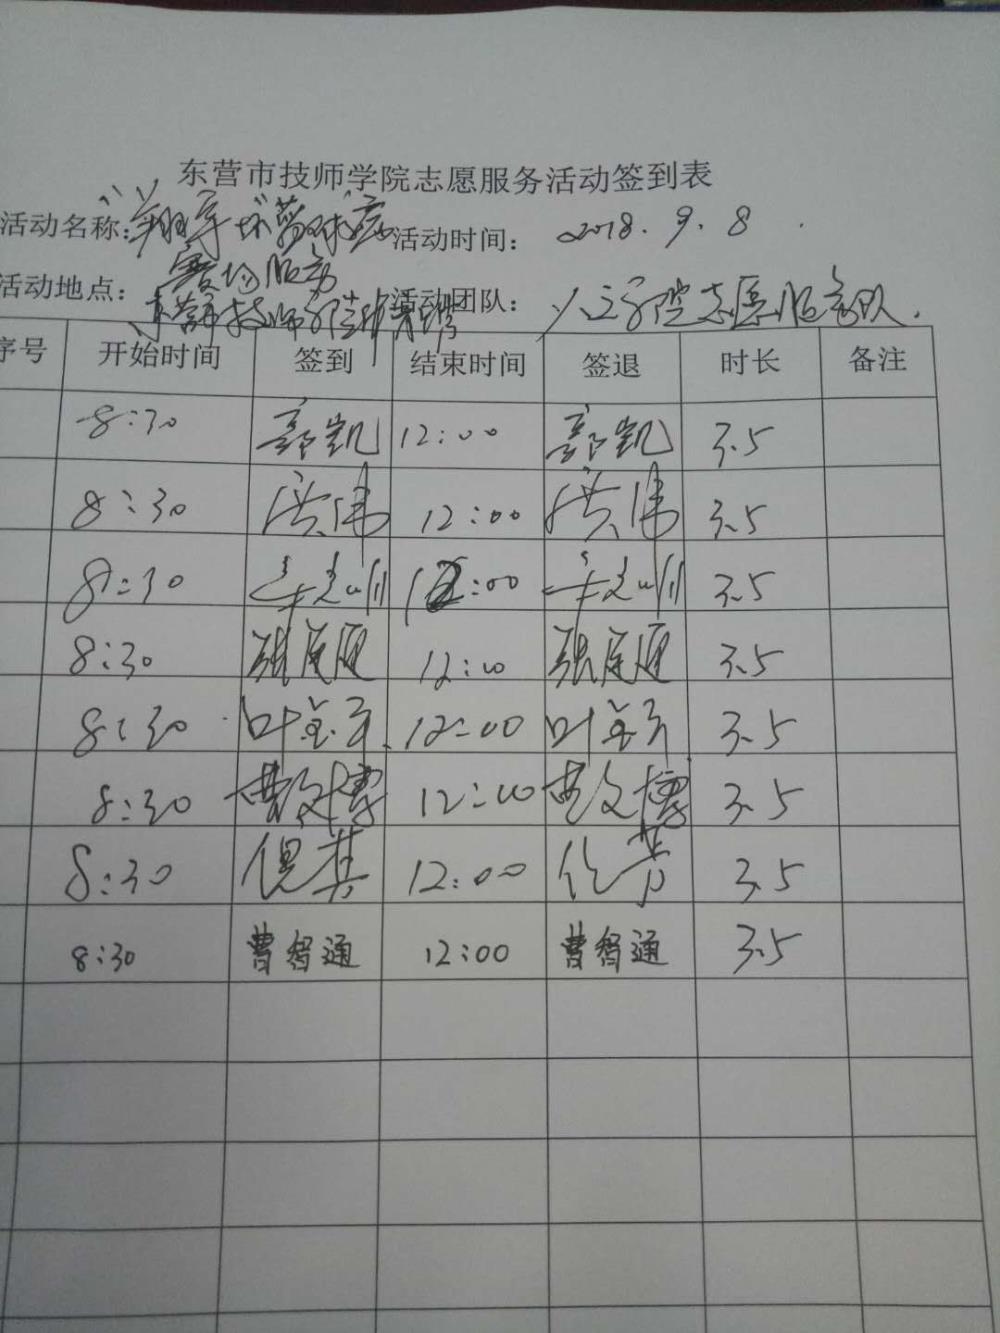 东营市技师学院志愿服务活动签到表
活动名称："翔宇杯"篮球 活动时间： 2018.9.8
赛场服务
活动地点： 东营市技师学院 活动团队： 学院志愿服务队.
序号 开始时间 签到 结束时间 签退 时长 备注
8:30 郭凯 12:00 郭凯 3.5
8:30 洪伟 12:00 洪伟 3.5
8:30 12:00 3.5
8:30 张 12:00 张 3.5
8:30 叶 12:00 叶 3.5
8:30 曹文博 12:00 曹文博 3.5
8:30 12:00 3.5
8:30 曹智通 12:00 曹智通 3.5